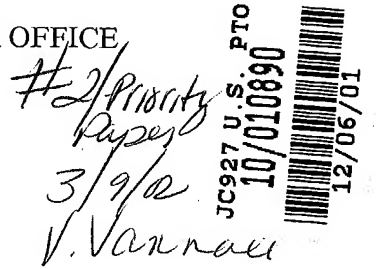 OFFICE
#2/Priority
Paper
3/9/02
JC927 U.S. PTO
10/010890
12/06/01